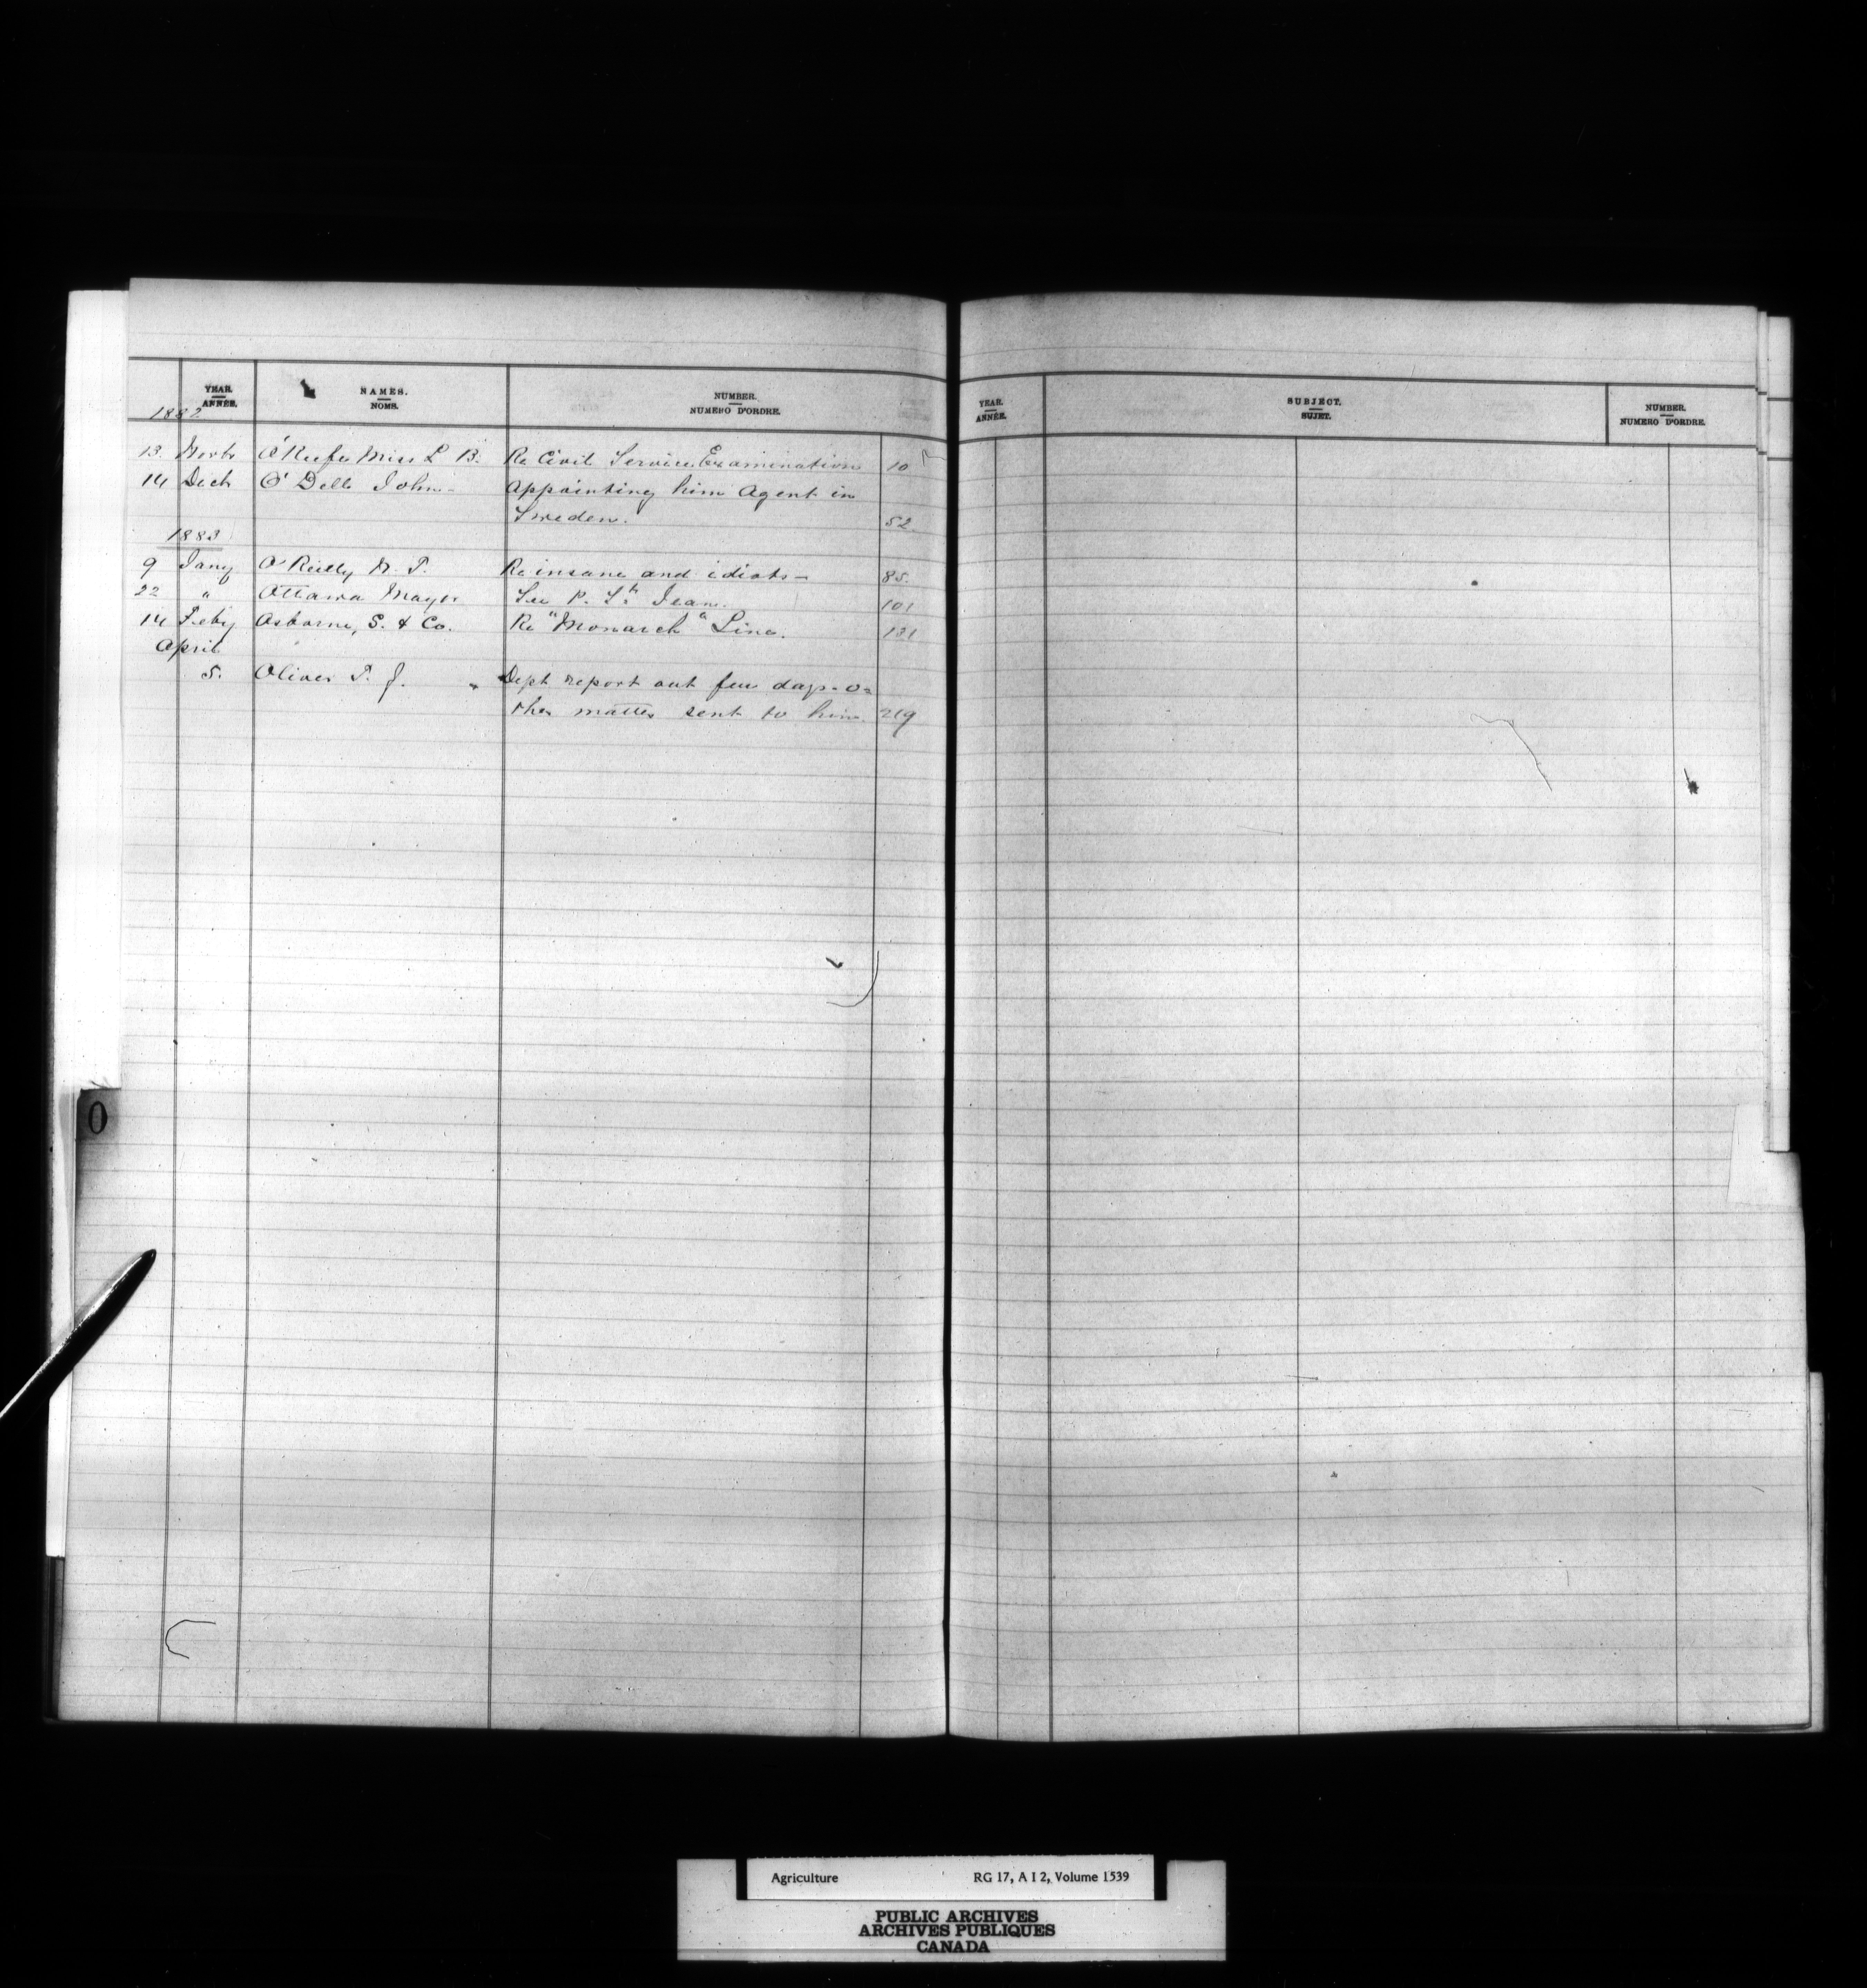 YEAR. ANNÉE. NAMES. NOMS. NUMBER. NUMERO D'ORDRE.
1882
13 Novbr O'Keefe Miss L B. Re Civil Service Examination 10
14 Decb O'Dell John - Appointing him Agent in
Sweden. 52
1883
9 Jany O'Reilly R. T. Re insane and idiots - 85.
22 " Ottawa Mayor See P. St Jean. 101
14 Feby Osborne, S. & Co. Re "Monarch" Line. 131
April
5. Oliver T. J. Dept report out few days - o=
ther matter sent to him 219
YEAR. ANNÉE. SUBJECT. SUJET. NUMBER. NUMERO D'ORDRE.
O
Agriculture RG 17, A I 2, Volume 1539
PUBLIC ARCHIVES
ARCHIVES PUBLIQUES
CANADA